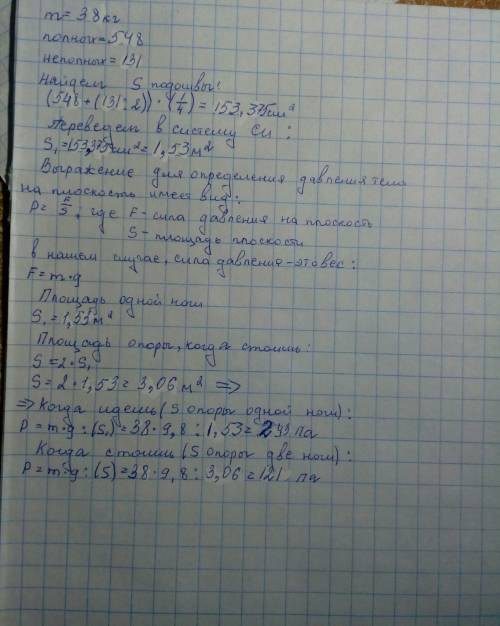 m = 38 кг
полных = 548
неполных = 131
Найдем S подошвы:
(548 + (131 : 2)) · (1/4) = 153,375 см²
Переведем в систему Си:
S₁ = 153,375 см² = 1,53 м²
Выражение для определения давления тела
на плоскость имеет вид:
P = F/S; где F - сила давления на плоскость
S - площадь плоскости
в нашем случае, сила давления - это вес:
F = m · g
Площадь одной ноги
S₁ = 1,53 м²
Площадь опоры, когда стоишь:
S = 2 · S₁
S = 2 · 1,53 = 3,06 м² =>
=> Когда идешь (S опоры одной ноги):
P = m · g : (S₁) = 38 · 9,8 : 1,53 = 243 Па
Когда стоишь (S опоры две ноги):
P = m · g : (S) = 38 · 9,8 : 3,06 = 121 Па